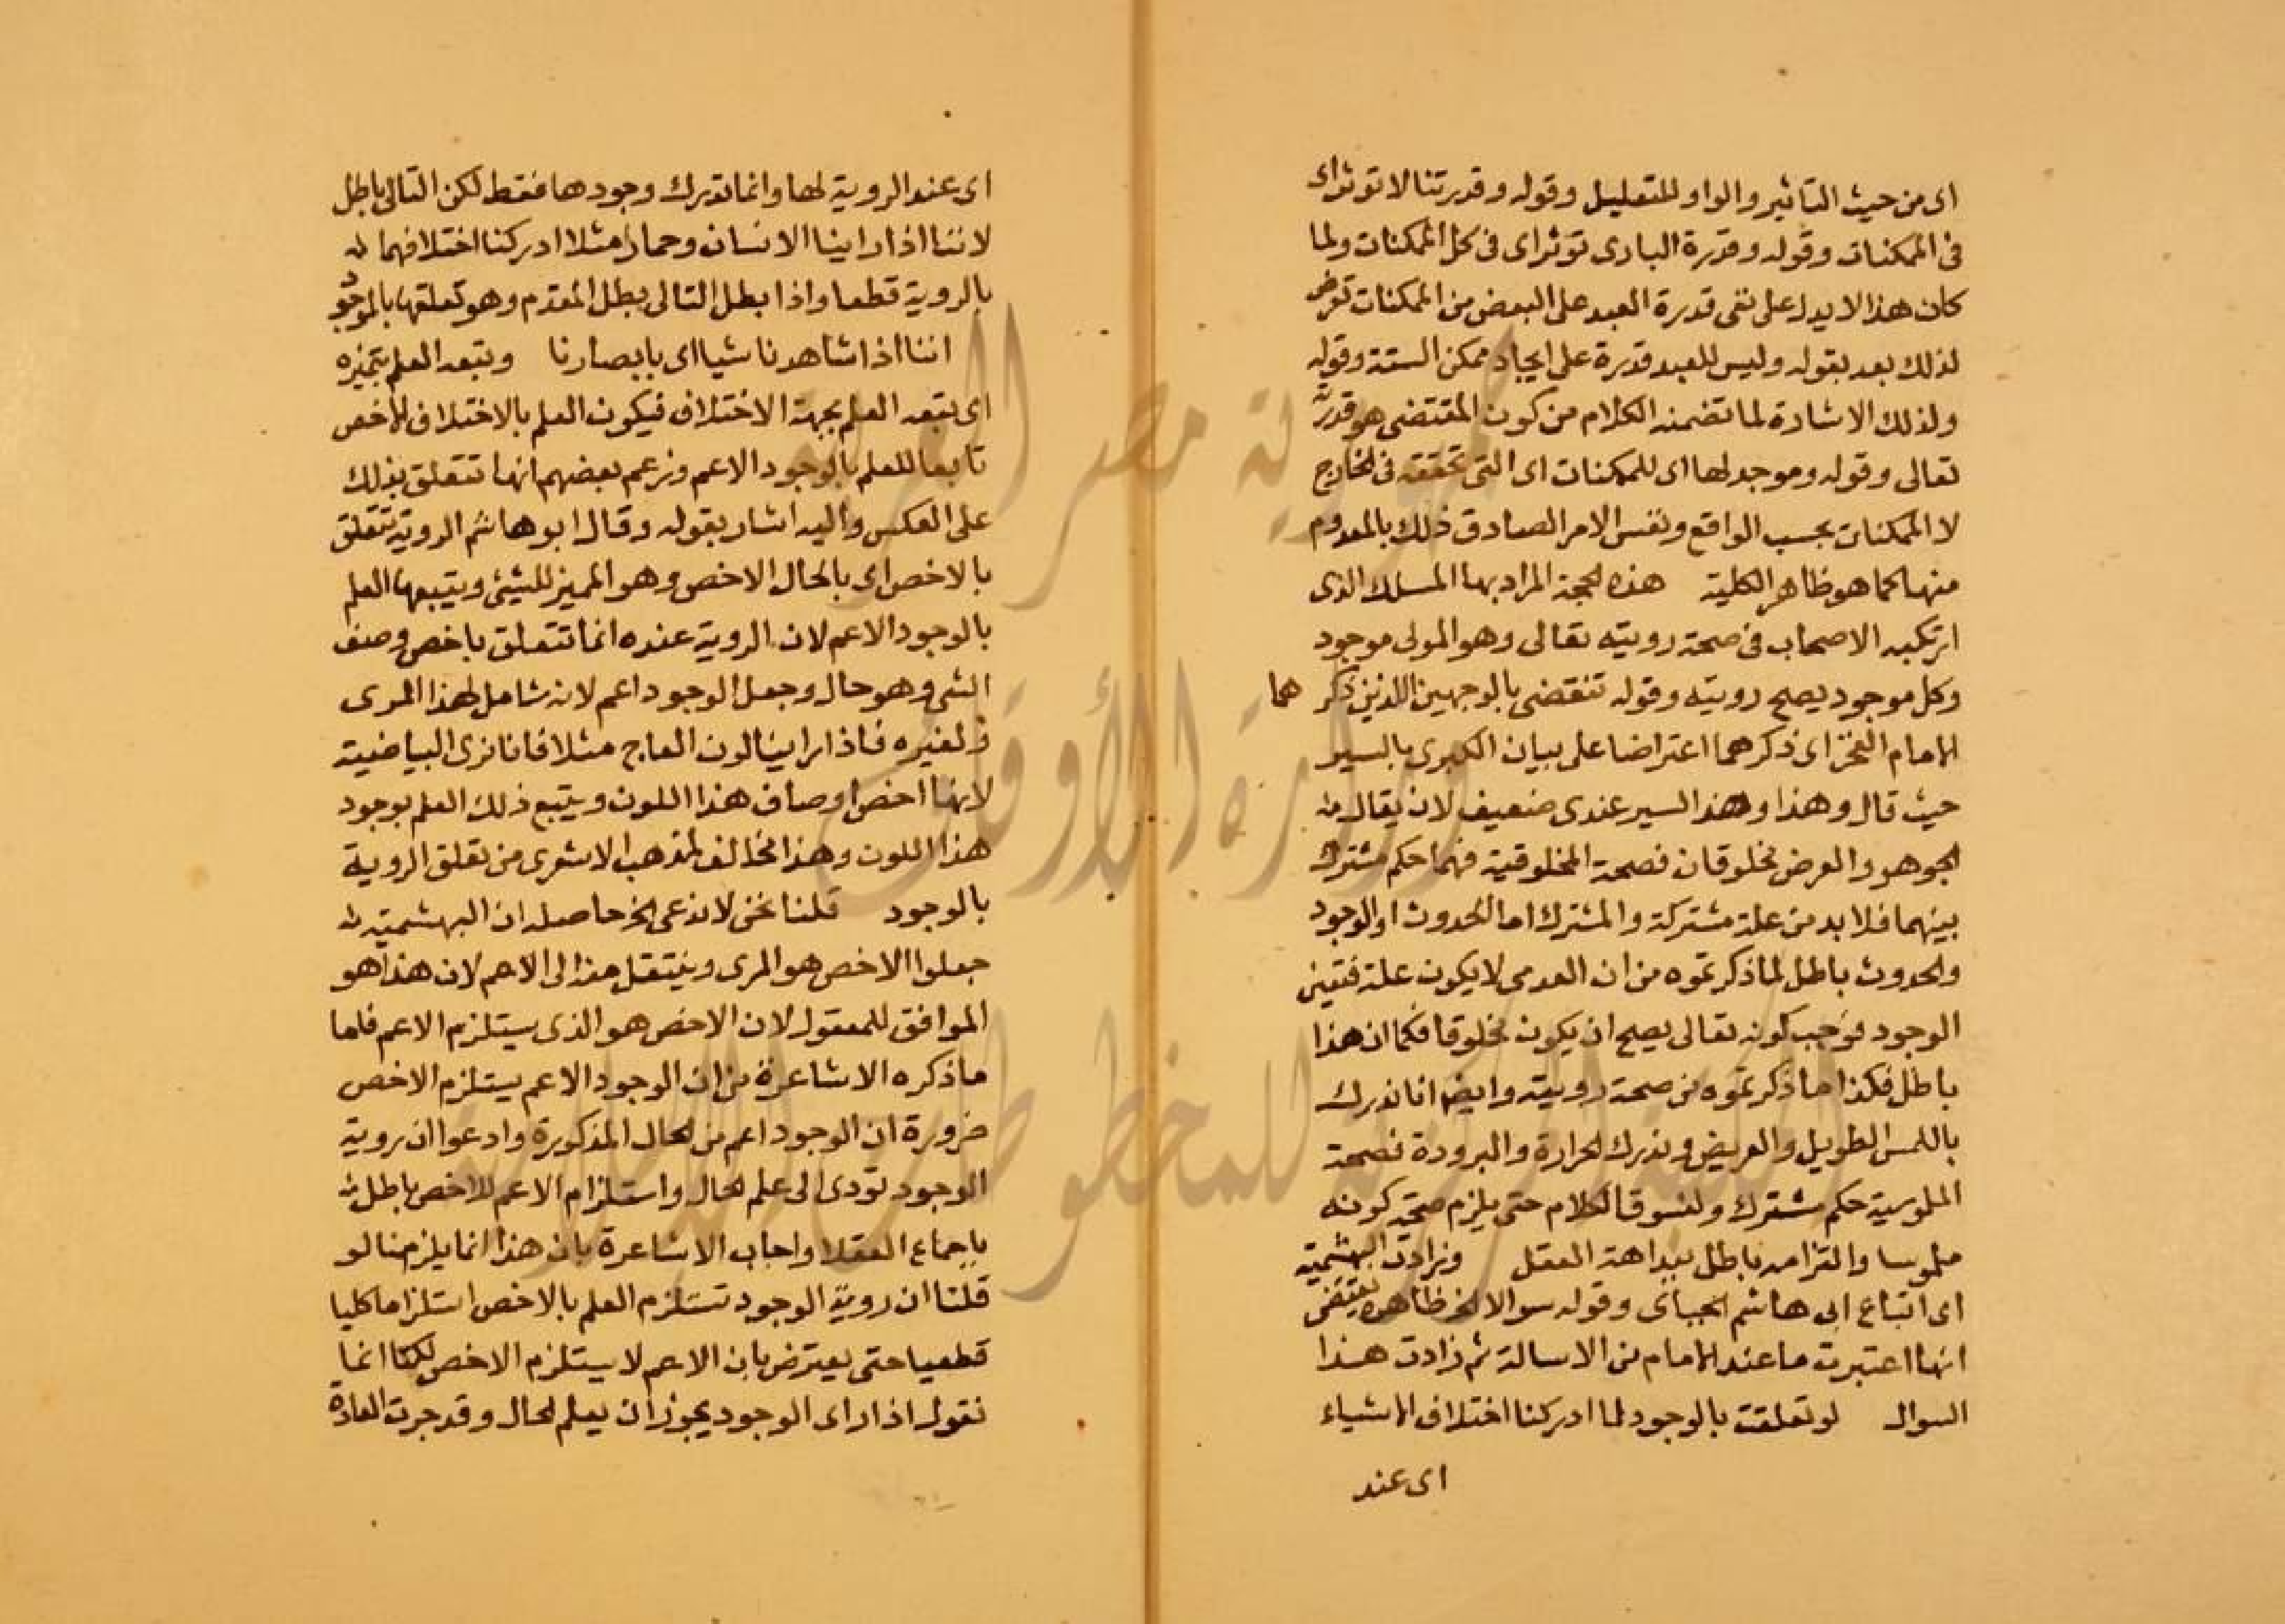 اى من حيث التاثير والواو للتعليل وقوله وقدرتنا لا توثر اى
فى الممكنات وقوله وقدرة البارى توثر اى فى كل الممكنات ولما
كان هذا لا يدل على نفى قدرة العبد على البعض من الممكنات تعرض
لذلك بعد بقوله وليس للعبد قدرة على ايجاد ممكن البتة وقوله
ولذلك الاشارة لما تضمنه الكلام من كون المقتضى هو قدرته
تعالى وقوله وموجد لها اى للممكنات اى التى تحققه فى الخارج
لا الممكنات بحسب الواقع ونفس الامر الصادق ذلك بالمعدوم
منها كما هو ظاهر الكلية هذه الحجة المراد بها المسلك الذى
ارتكبه الاصحاب فى صحة رويته تعالى وهو المولى موجود
وكل موجود يصح رويته وقوله تنقضى بالوجهين اللذين ذكر هما
الامام الفخر اى ذكرهما اعتراضا على بيان الكبرى بالسير
حيث قال وهذا وهذا السير عندى ضعيف لان يقال
الجوهر والعرض مخلوقان فصحة المخلوقية فيهما حكم مشترك
بينهما فلا بد من علة مشتركة والمشترك اما الحدوث او الوجود
والحدوث باطل لما ذكرتموه من ان العدمى لا يكون علة فتعين
الوجود فوجب كونه تعالى يصح ان يكون مخلوقا فكما ان هذا
باطل فكذا ما ذكرتموه من صحة رويته وايضا انا ندرك
باللمس الطويل والعريض وندرك الحرارة والبرودة فصحة
الملوسية حكم مشترك ولنسوق الكلام حتى يلزم صحة كونه
ملموسا والتزامه باطل ببداهة العقل وزادت البهشمية
اى اتباع ابى هاشم الجباى وقوله سوالا الخ ظاهره يقتضى
انها اعتبرت ما عند الامام من الاسالة ثم زادت هذا
السوال لو تعلقت بالوجود لما ادركنا اختلاف الاشياء
اى عند
اى عند الروية لها وانما تدرك وجودها فقط لكن التالى باطل
لاننا اذا راينا الانسان وحمارا مثلا ادركنا اختلافهما
بالروية قطعا واذا بطل التالى بطل المقدم وهو تعلقها بالموجود
اننا اذا شاهدنا شيا اى بابصارنا ويتبعه العلم بتميزه
اى يتبعه العلم بجهة الاختلاف فيكون العلم بالاختلاف الاخص
تابعا للعلم بالوجود الاعم وزعم بعضهم انها تتعلق بذلك
على العكس واليه اشار بقوله وقال ابو هاشم الروية تتعلق
بالاخص اى بالحال الاخص وهو المميز للشئ ويتبعها العلم
بالوجود الاعم لان الروية عنده انما تتعلق باخص وصف
الشى وهو حال وجعل الوجود اعم لانه شامل لهذا المرى
ولغيره فاذا راينا لون العاج مثلا فانا نرى البياضية
لانها اخص اوصاف هذا اللون ويتبع ذلك العلم بوجود
هذا اللون وهذا مخالف لمذهب الاشعرى من تعلق الروية
بالوجود قلنا نحن لا ندعى الخ حاصله ان البهشمية
جعلوا الاخص هو المرى وينتقل منه الى الاعم لان هذا هو
الموافق للمعقول لان الاخص هو الذى يستلزم الاعم فاما
ما ذكره الاشاعرة من ان الوجود الاعم يستلزم الاخص
ضرورة ان الوجود اعم من الحال المذكورة وادعوا ان روية
الوجود تودى الى علم الحال واستلزام الاعم للاخص باطل
باجماع العقلا واجاب الاشاعرة بان هذا انما يلزمنا لو
قلنا ان روية الوجود تستلزم العلم بالاخص استلزاما كليا
قطعيا حتى يعترض بان الاعم لا يستلزم الاخص لكنا انما
نقول اذا راى الوجود يجوز ان يعلم الحال وقد جرت العادة
جمهورية مصر العربية
وزارة الأوقاف
المكتبة المركزية للمخطوطات الإسلامية